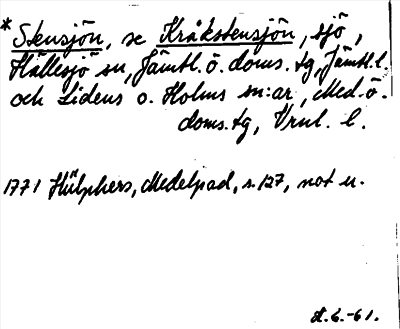 * Stensjön, se Kråkstensjön, sjö,
Hällesjö sn, Jämtl. ö. doms. tg, Jämtl. l.
och Lidens o. Holms sn:ar, Med. ö.
doms. tg, Vrnl. l.
1771 Hülphers, Medelpad, s. 127, not u.
-61.